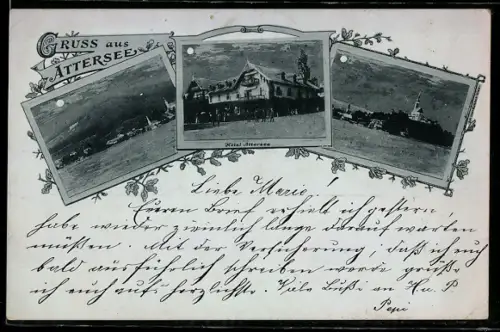 GRUSS aus
ATTERSEE
Hôtel Attersee
Liebe Marie!
Eueren Brief erhielt ich gestern,
habe wieder ziemlich lange darauf warten
müssen. Mit der Versicherung, daß ich euch
bald ausführlich schreiben werde grüße
ich euch aufs herzlichste. Viele Bußi an
Pepi